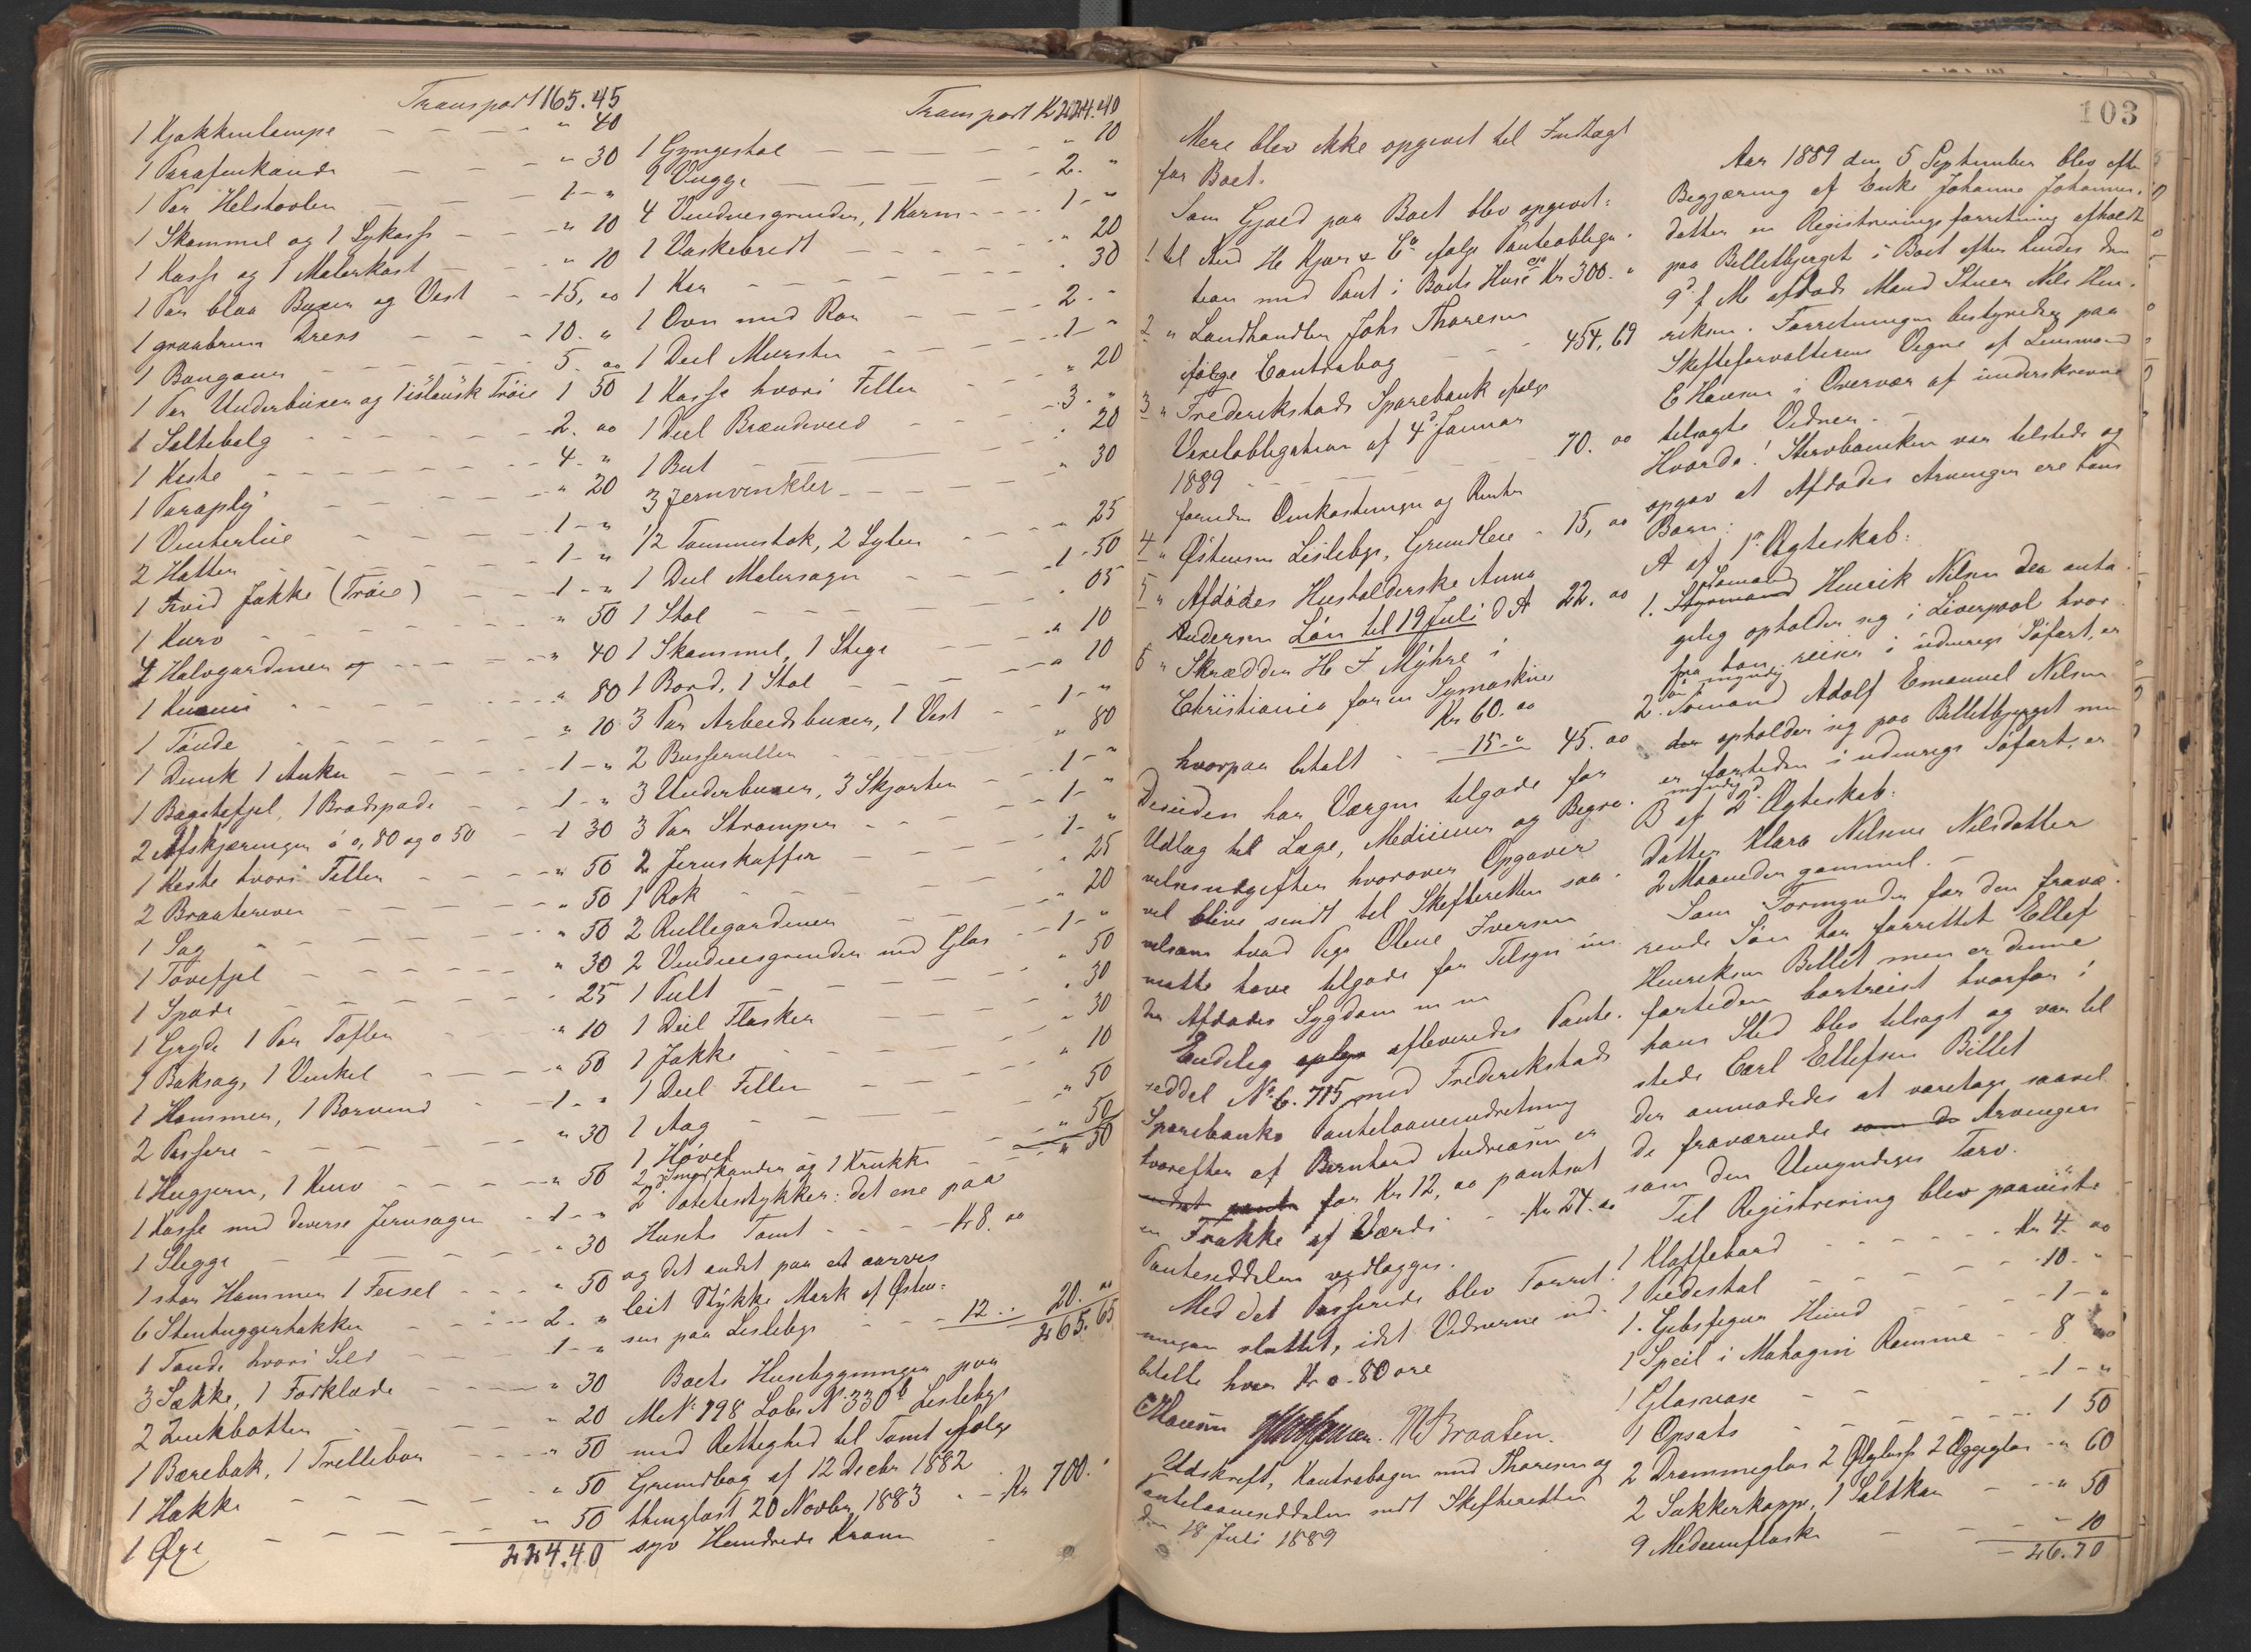 Transport 165.45
1 Kjøkkenlampe - - - - " 40
1 Parafinkande - - - " 30
1 Par Helstøvler - - - 1 - "
1 Skammel og 1 Sykasse - - - " 10
1 Kasse og 1 Malerkost - - - " 10
1 Par blaa Buxer og Vest - - 15, 00
1 graabrun Dress - - - 10. "
1 - - - - 5. 00
1 Par Underbuxer og 1 islansk Trøie 1 50
1 Sættebalg - - - - 2. 00
1 Kiste - - - - 4. "
1 Paraply - - - - " 20
1 Vinterlue - - - - 1 - "
2 Hatter - - - - 1 - "
1 hvid Jakke (Trøie) - - 1 - "
1 Kurv - - - - " 50
4 Halvgardiner - - - " 40
1 - - - - " 80
1 Tønde - - - - " 10
1 Dunk 1 Anker - - - 1 - "
1 Bagstefjel, 1 Brødspade - - 1 - "
2 Afskjæringer à 0,80 og 0 50 - 1 30
1 Kiste hvori Filler - - - " 50
2 - - - - " 50
1 Sag - - - - " 50
1 Tovefjel - - - - " 30
1 Spade - - - - 25
1 Gryde 1 Par Tøfler - - - " 10
1 Baksag, 1 Vinkel - - - " 50
1 Hammer, 1 Borvind - - 1 - "
2 Passere - - - - " 30
1 Hugjern, 1 Kurv - - - " 50
1 Kasse med diverse Jernsager - 1 - "
1 Slegge - - - - " 30
1 stor Hammer 1 Feisel - - " 50
6 Stenhuggerhakker - - - 2. "
1 Tønde hvori Sild - - - 1 - "
3 Sække, 1 Forklæde - - - " 30
2 Zinkbøtter - - - - " 20
1 Bærebøk, 1 Trillebør - - " 50
1 Hakke - - - - " 50
1 Øxe - - - - " 50
224.40
Transport Kr 224.40
1 Gyngestol - - - - " 10
1 Vugge - - - - 2. "
4 Vinduesgrinder, 1 Karm - - 1 - "
1 Vaskebredt - - - - " 20
1 Kar - - - - " 30
1 Ovn med Rør - - - 2. "
1 Deel Mursten - - - 1 - "
1 Kasse hvori Filler - - - " 20
1 Deel Brændeveed - - - 3. "
1 But - - - - " 20
3 Jernvinkler - - - - " 30
1/2 Tommestok, 2 Syler - - - " 25
1 Deel Malersager - - - 1 - 50
1 Stol - - - - " 05
1 Skammel, 1 Stige - - - " 10
1 Bord, 1 Stol - - - " 10
3 Par Arbeidsbuxer, 1 Vest - - 1 - "
2 Busseruller - - - " 80
3 Underbuxer, 3 Skjorter - - 1 - "
3 Par Strømper - - - 1 - "
2 Jernskuffer - - - 1 - "
1 Rok - - - - " 25
2 Rullegardiner - - - " 20
2 Vinduesgrinder med Glas - - 1 - "
1 Pult - - - - " 50
1 Deel Flasker - - - " 30
1 Jakke - - - - " 30
1 Deel Filler - - - " 10
1 Aag - - - - " 50
1 Høvel - - - " 50
2 Smørkander og 1 Krukke - - " 50
2de Potetestykker: det ene paa
Husets Tomt - - - Kr 8. 00
og det andet paa et aarvis
leit Stykke Mark af Østen-
sen paa Lisleby - - - 12 - " 20. 00
265.65
Boets Husebygninger paa
M No 198 Løbe No 330 b Lisleby
med Rettighed til Tomt ifølge
Grundbog af 12 Decbr 1882
thinglæst 20 Novbr 1883 - - Kr 700. "
syv Hundrede Kroner
Mere blev ikke opgivet til Indtægt
for Boet.
Som Gjæld paa Boet blev opgivet:
1 til And H Kjær & Co ifølge Panteobliga-
tion med Pant i Boets Huse Kr 300. "
2 " Landhandler Johs Thoresen
ifølge Contrabog - - - 454,69
3 " Frederikstads Sparebank ifølge
Vexelobligation af 4d Januar
1889 - - - - 70. 00
foruden Omkostninger og Renter
4 " Østensen Lisleby, Grundleie - 15, 00
5 " Afdødes Husholderske Anna
Andersen Løn til 19 Juli d A 22. 00
6 " Skrædder H J Myhre i
Christiania for en Symaskine
Kr 60. 00
hvorpaa betalt - - 15 - " 45. 00
Desuden har Værgen tilgode for
Udlæg til Læge, Medisiner og Begra-
velsesudgifter hvorover Opgaver
vil blive sendt til Skifteretten saa-
velsom hvad Pige Oline Iversen
maatte have tilgode for Tilsyn un-
der Afdødes Sygdom m m
Endelig afleveredes Pante-
seddel No 6.715 med Frederikstads
Sparebanks Pantelaaneindretning
hvorefter af Bernhard Andreasen er
for Kr 12, 00 pantsat
en Frakke af Værdi - Kr 24. 00
Panteseddelen vedlægges.
Med det Passerede blev Forret-
ningen sluttet, idet Vidnerne ud-
betalte hver Kr 0 - 80 øre
EHansen M Braaten.
Udskrift, Kontrabogen med Thoresen og
Pantelaaneseddelen sendt Skifteretten
den 18 Juli 1889
103
Aar 1889 den 5 September blev efter
Begjæring af Enke Johanne Johannes-
datter en Registreringsforretning afholdt
paa Billetbjerget i Boet efter hendes den
9d f M afdøde Mand Stuer Nils Hen-
riksen. Forretningen bestyredes paa
Skifteforvalterens Vegne af Lensmand
E Hansen i Overvær af underskrevne
tilsagte Vidner. -
Hvorda! Stervboenken var tilstede og
opgav at Afdødes Arvinger ere hans
Børn:
A af 1ste Ægteskab:
1. Styrmand Sømand Henrik Nilsen der anta-
gelig opholder sig i Liverpool hvor-
fra han reiser i udenrigs Søfart, er
myndig
2. Sømand Adolf Emanuel Nilsen
der opholder sig paa Billetbjerget men
er fortiden i udenrigs Søfart, er
myndig
B af 2d Ægteskab:
Datter Klara Nilsine Nilsdatter
2 Maaneder gammel. -
Som Formynder for den fravæ-
rende Søn har forrettet Ellef
Henriksen Billet men er denne
fortiden bortreist hvorfor i
hans Sted blev tilsagt og var til-
stede Carl Ellefsen Billet
der anmodedes at varetage saavel
de fraværende som de Arvingers
som den Umyndiges Tarv.
Til Registrering blev paaviist:
1 Klaffebord - - - - Kr 4. 00
1 Piedestal - - - - 10. "
1. Gibsfigur Hund - - - 1 - "
1 Speil i Mahagni Ramme - - 8 00
1 Glasvase - - - - 1 - "
1 Opsats - - - - 1 50
2 Dramneglas 2 Ølglass 2 Æggeglas - " 60
2 Sukkerkoppe, 1 Saltkar - - " 50
9 Medicinflaske - - - " 10
- 26.70